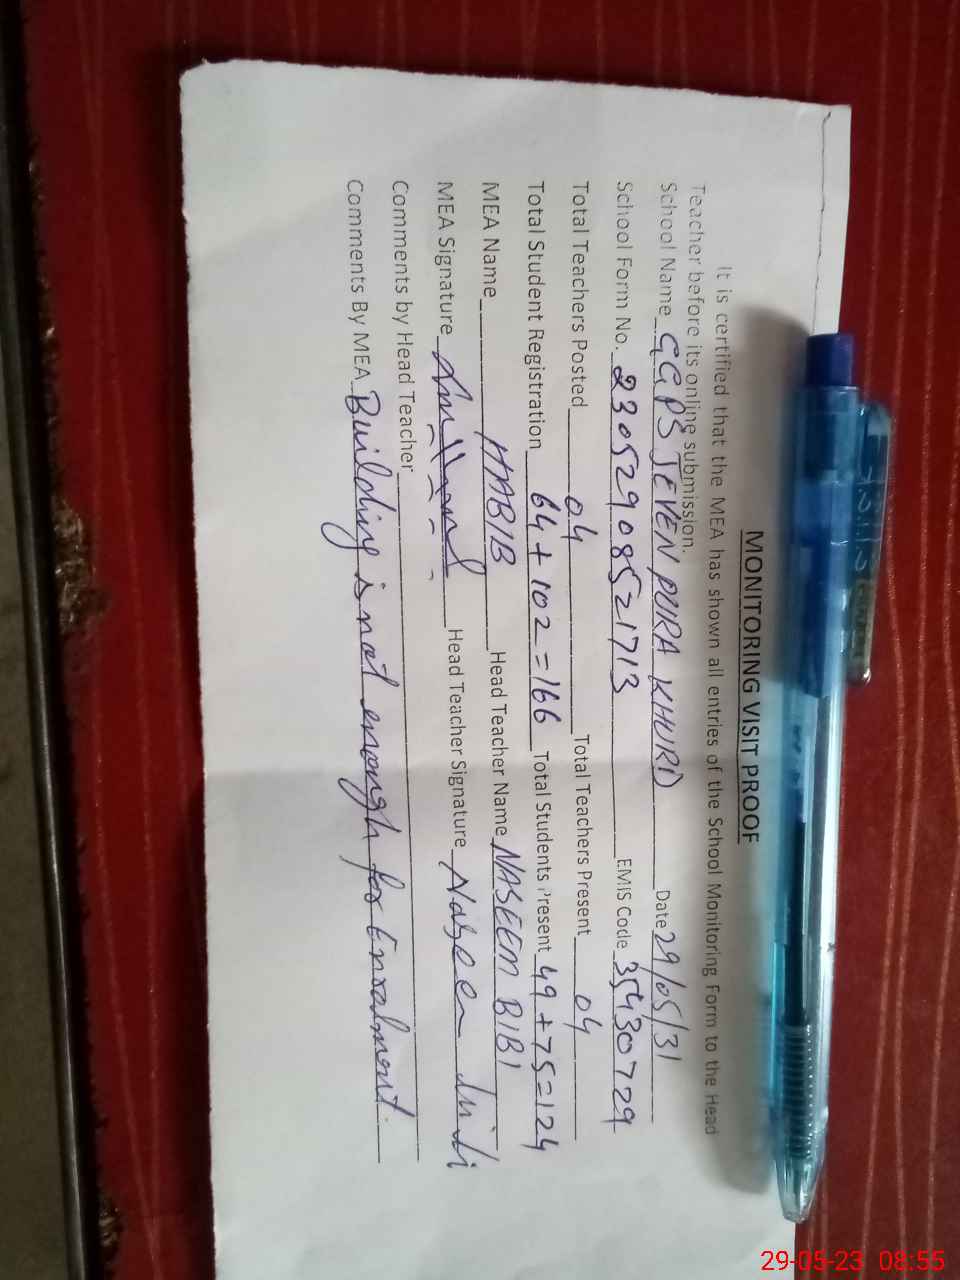 MONITORING VISIT PROOF
It is certified that the MEA has shown all entries of the School Monitoring Form to the Head
Teacher before its online submission.
School Name GGPS JEVEN PURA KHURD Date 29/05/31
School Form No. 23052908521713 EMIS Code 35430729
Total Teachers Posted 04 Total Teachers Present 04
Total Student Registration 64 + 102 = 166 Total Students Present 49 + 75 = 124
MEA Name HABIB Head Teacher Name NASEEM BIBI
MEA Signature Head Teacher Signature Naseem
Comments by Head Teacher
Comments By MEA Building is not enough for Enrolment.
29-05-23 08:55